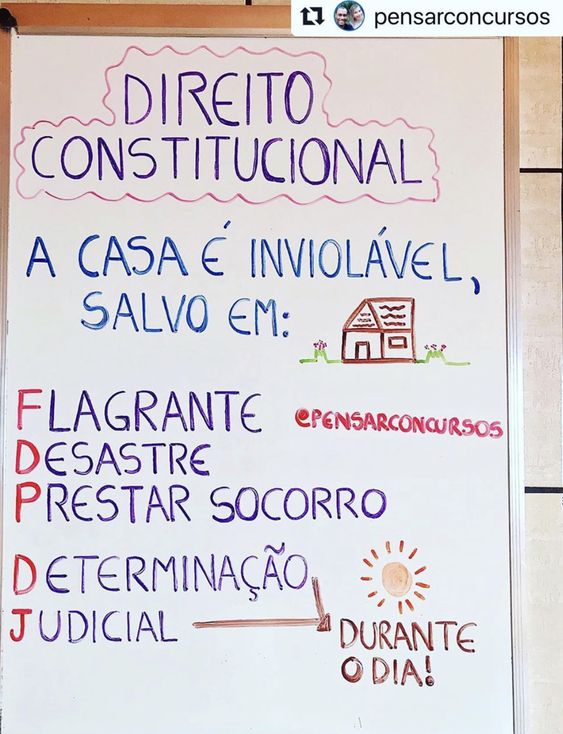 pensarconcursos
DIREITO
CONSTITUCIONAL
A CASA É INVIOLÁVEL,
SALVO EM:
FLAGRANTE
@PENSARCONCURSOS
DESASTRE
PRESTAR SOCORRO
DETERMINAÇÃO
JUDICIAL
DURANTE
O DIA!